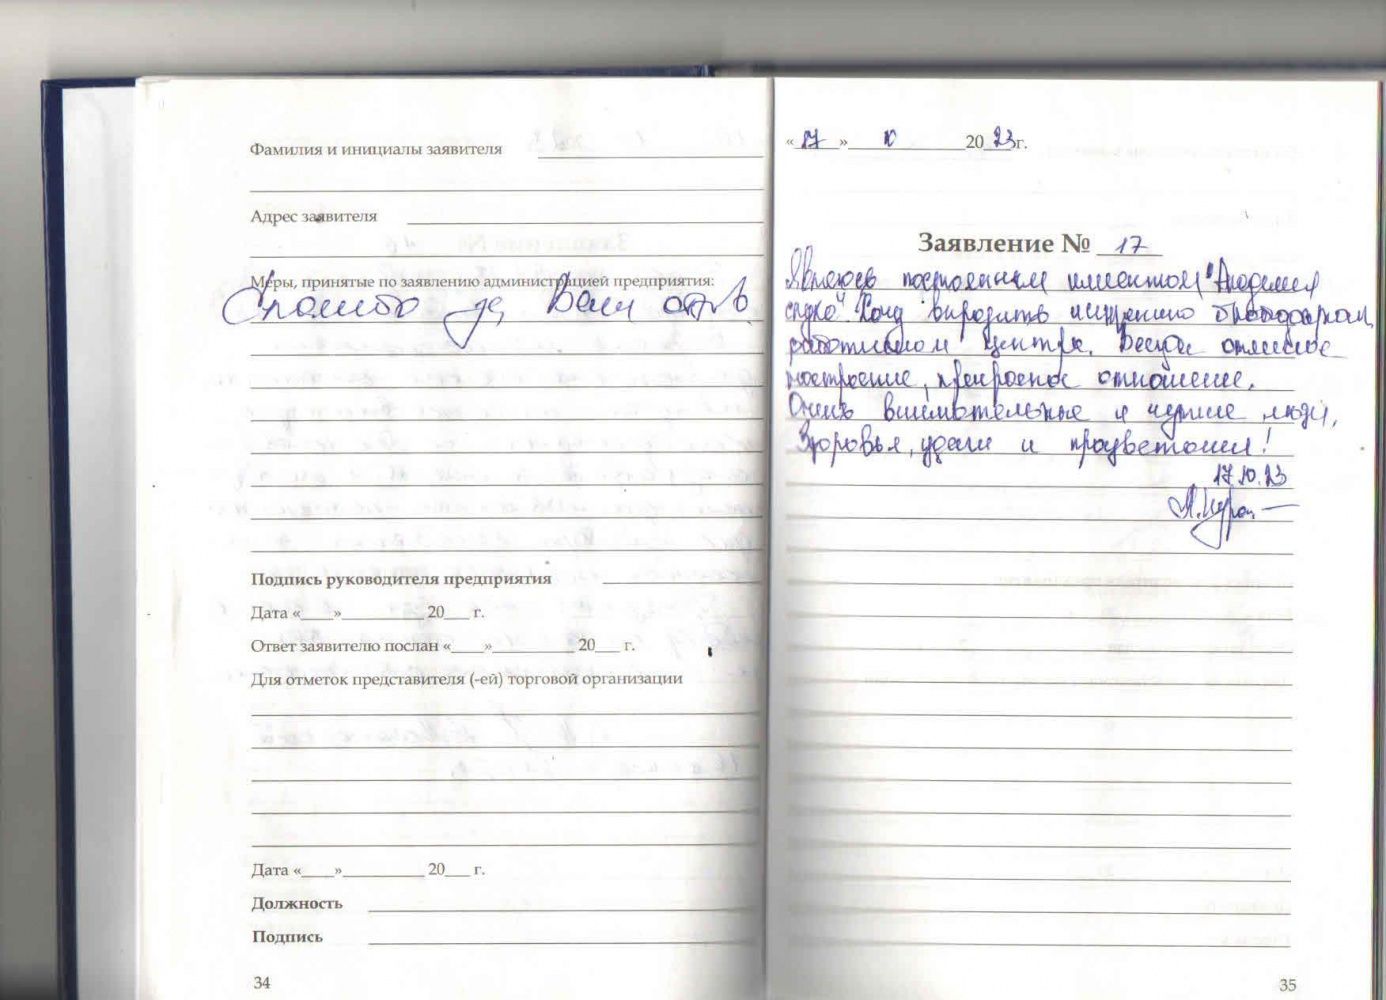 Фамилия и инициалы заявителя
Адрес заявителя
Меры, принятые по заявлению администрацией предприятия:
Спасибо за Ваш отзыв
Подпись руководителя предприятия
Дата «____»__________ 20___ г.
Ответ заявителю послан «____»__________ 20___ г.
Для отметок представителя (-ей) торговой организации
Дата «____»__________ 20___ г.
Должность
Подпись
34
« 17 » 10 20 23 г.
Заявление № 17
Являюсь постоянным клиентом "Академия
слуха". Хочу выразить искреннюю благодарность
работникам центра. Всегда отличное
настроение, прекрасное отношение.
Очень внимательные и чуткие люди.
Здоровья, удачи и процветания!
17.10.23
35